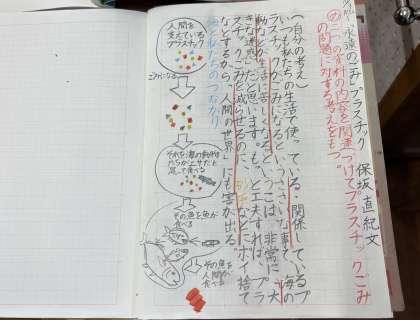 「永遠のごみ」プラスチック 保坂 直紀 文
二つの資料の内容を関連づけてプラスチックごみ
の問題に対する考えをもつ。
(自分の考え)
いつも私たちの生活で使っている・関係しているプ
ラスチックがごみになるといつ
動 など
きな迷惑 だと思います。も と工夫すれば、プラ
スチックごみを減らせるのに、 などにポイ捨て
などするから「人間の世界」にも害が出る。
海と私たちのつながり
人間を
支えている
プラスチック
ごみになる
それを海の動物
たちがエサだと
思って食べる
その魚を魚が
食べる
その魚を
人間が
食べる